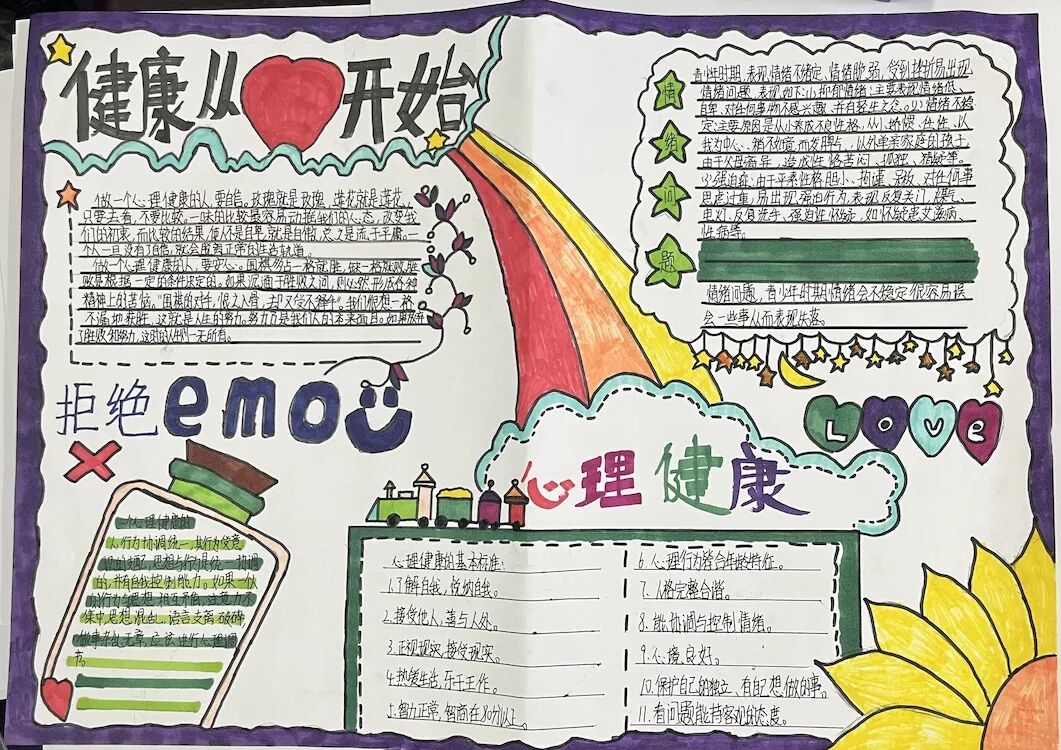 健康从 开始
做一个心理健康的人,要自信。玫瑰就是玫瑰,莲花就是莲花,
只要去看,不要比较。一味的比较最容易动摇我们的心态,改变我
们的初衷,而比较的结果,使人不是自卑,就是自傲,总之是流于平庸。一
个人一旦没有了自信,就会脱离正常的生活轨道。
做一个心理健康的人,要安心。围棋易占一格就胜,缺一格就败,胜
败是根据一定的条件决定的。如果沉湎于胜败之间,则必然形成各种
精神上的苦恼。"围棋的对手,恨之入骨,却又学不得乎"我们很想一格
不漏地获胜,这就是人生的努力。努力乃是我们人的本来面目。如果放弃
了胜败和努力,这时的人生则一无所有。
拒绝emo
一个心理健康的
人,行为协调统一,其行为受意
识的支配,思想与行为是统一协调
的,并有自我控制能力。如果一个人
的行为与思想相互矛盾,注意力不
集中,思想混乱,语言支离破碎,
做事杂乱无章,应该进行心理调
节。
情绪问题
青少年时期,表现情绪不稳定、情绪脆弱,受到挫折易出现
情绪问题,表现如下:(1)抑郁情绪:主要表现情绪低、
自卑,对任何事物不感兴趣,并有轻生之念。(2)情绪不稳
定:主要原因是从小养成不良性格,从小娇惯、任性、以
我为中心、稍不如意而发脾气,从外单亲家庭的孩子,
由于父母离异,造成性格苦闷、孤独、猜疑等。
(3)强迫症:由于平素性格胆小、拘谨、呆板,对任何事
思虑过重,易出现强迫行为,表现反复关门、煤气、
电灯、反复洗手,强迫性怀疑,如怀疑患艾滋病、
性病等。
情绪问题,青少年时期情绪会不稳定,很容易误
会一些事从而表现失落。
LOVE
心理健康
心理健康的基本标准:
1.了解自我,悦纳自我。
2.接受他人,善与人处。
3.正视现实,接受现实。
4.热爱生活,乐于工作。
5.智力正常,智商在80分以上。
6.心理行为皆合年龄特征。
7.人格完整合谐。
8.能协调与控制情绪。
9.心境良好。
10.保护自己的独立、有自己想做的事。
11.看问题能持客观的态度。